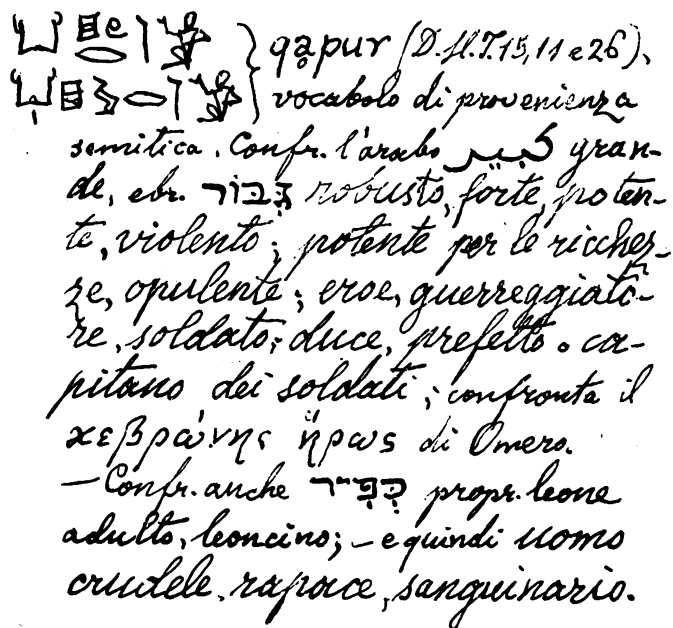 qạpur (D.H.T. 15, 11 e 26),
vocabolo di provenienza
semitica. Confr. l'arabo كبير gran-
de, ebr. גִּבּוֹר robusto, forte, poten-
te, violento; potente per le ricchez-
ze, opulente; eroe, guerreggiato-
re, soldato; duce, prefetto o ca-
pitano dei soldati; confronta il
κεβρώνης ἥρως di Omero.
— Confr. anche כְּפִיר propr. leone
adulto, leoncino; — e quindi uomo
crudele, rapace, sanguinario.